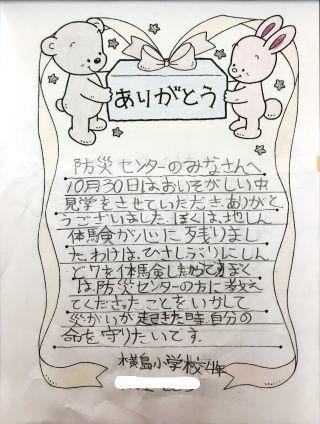 ありがとう
防災センターのみなさんへ
10月30日はおいそがしい中
見学をさせていただきありがと
うございました。ぼくは、地しん
体験が心に残りまし
た。わけは、ひさしぶりにしん
ど7を体験したからです。ぼく
は、防災センターの方に教え
てくださったことをいかして
災がいが起きた時、自分の
命を守りたいです。
横島小学校4年